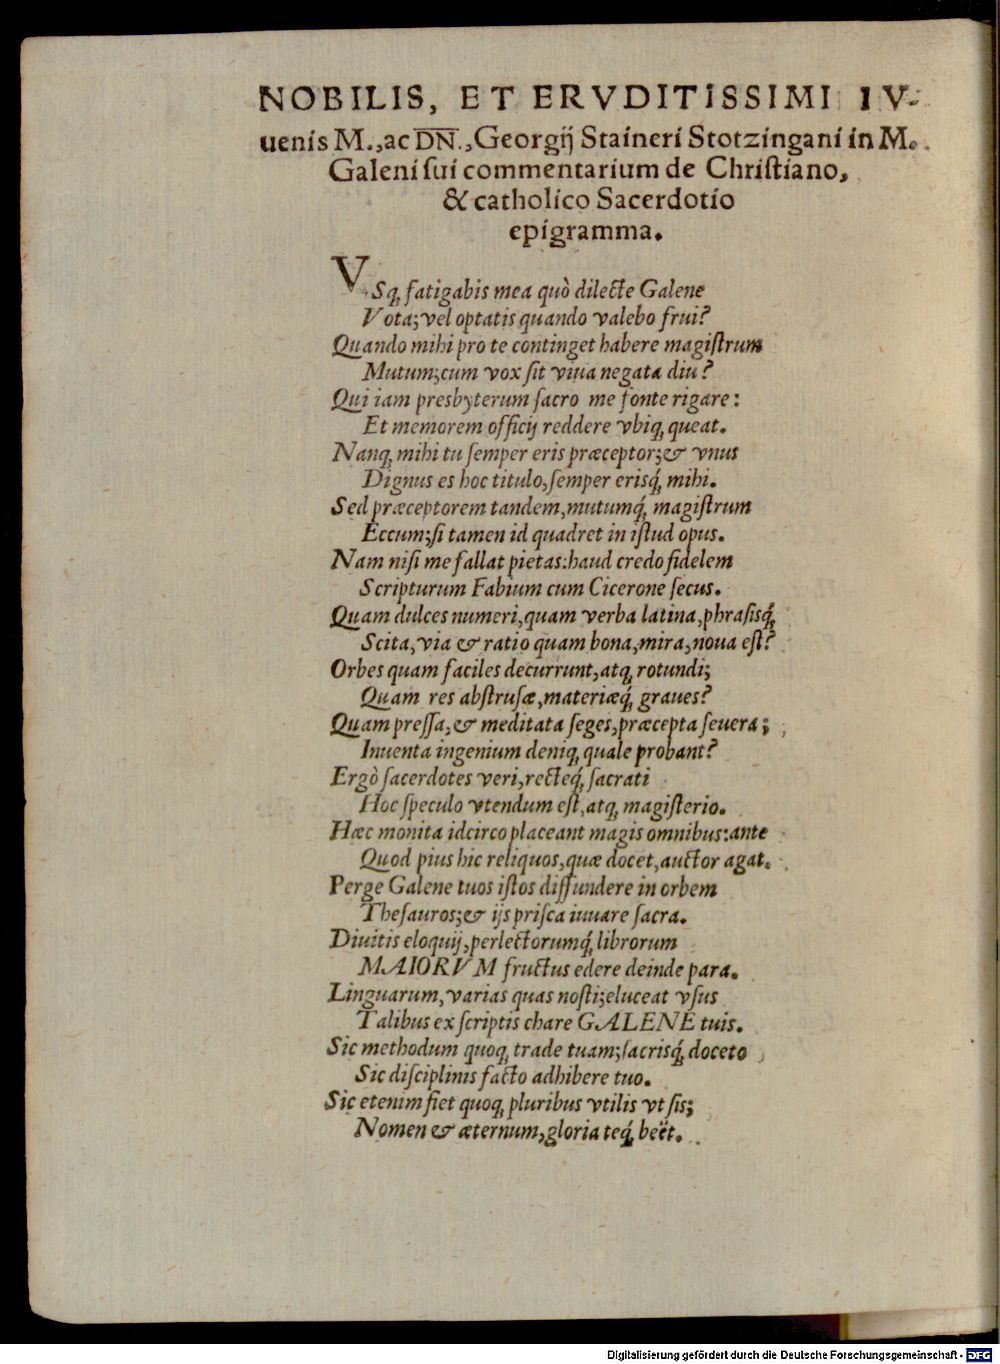 NOBILIS, ET ERVDITISSIMI IV-
uenis M., ac D̅N̅., Georgij Staineri Stotzingani in M.
Galeni ſui commentarium de Chriſtiano,
& catholico Sacerdotio
epigramma.
VSq; fatigabis mea quò dilecte Galene
Vota; vel optatis quando valebo frui?
Quando mihi pro te continget habere magiſtrum
Mutum; cum vox ſit viua negata diu?
Qui iam presbyterum ſacro me fonte rigare:
Et memorem officij reddere vbiq; queat.
Nanq; mihi tu ſemper eris præceptor; & vnus
Dignus es hoc titulo, ſemper erisq́; mihi.
Sed præceptorem tandem, mutumq́; magiſtrum
Eccum; ſi tamen id quadret in iſtud opus.
Nam niſi me fallat pietas: haud credo fidelem
Scripturum Fabium cum Cicerone ſecus.
Quam dulces numeri, quam verba latina, phraſisq́;
Scita, via & ratio quam bona, mira, noua eſt?
Orbes quam faciles decurrunt, atq; rotundi;
Quam res abſtruſæ, materiæq́; graues?
Quam preſſa, & meditata ſeges, præcepta ſeuera;
Inuenta ingenium deniq; quale probant?
Ergò ſacerdotes veri, recteq́; ſacrati
Hoc ſpeculo vtendum eſt, atq; magiſterio.
Hæc monita idcirco placeant magis omnibus: ante
Quod pius hic reliquos, quæ docet, auctor agat.
Perge Galene tuos iſtos diffundere in orbem
Theſauros; & ijs priſca iuuare ſacra.
Diuitis eloquij, perlectorumq́; librorum
MAIORVM fructus edere deinde para.
Linguarum, varias quas noſti; eluceat vſus
Talibus ex ſcriptis chare GALENE tuis.
Sic methodum quoq; trade tuam; ſacrisq́; doceto
Sic diſciplinis facto adhibere tuo.
Sic etenim fiet quoq; pluribus vtilis vt ſis;
Nomen & æternum, gloria teq́; beët.
Digitalisierung gefördert durch die Deutsche Forschungsgemeinschaft - DFG